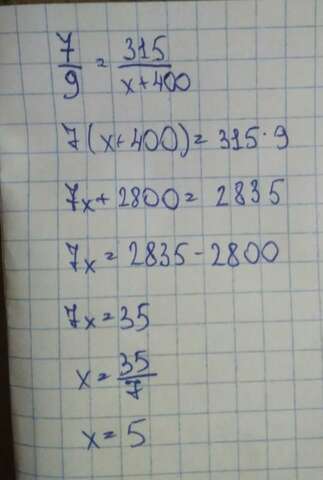 7/9 = 315/(x+400)
7(x+400)=315·9
7x+2800=2835
7x=2835-2800
7x=35
x=35/7
x=5